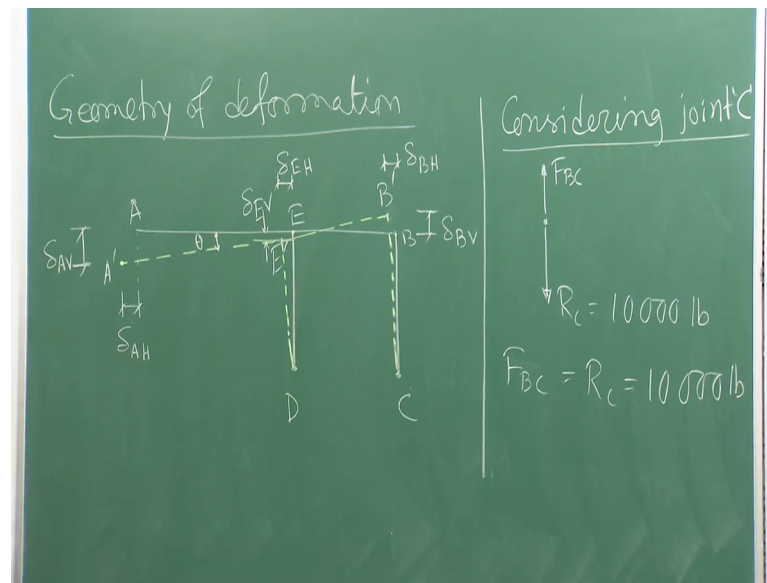 Geometry of deformation
δEH
δBH
δEV
A
E
B'
B
δBV
δAV
A'
θ
E'
δAH
D
C
Considering joint 'C'
FBC
Rc = 10000 lb
FBC = Rc = 10000 lb